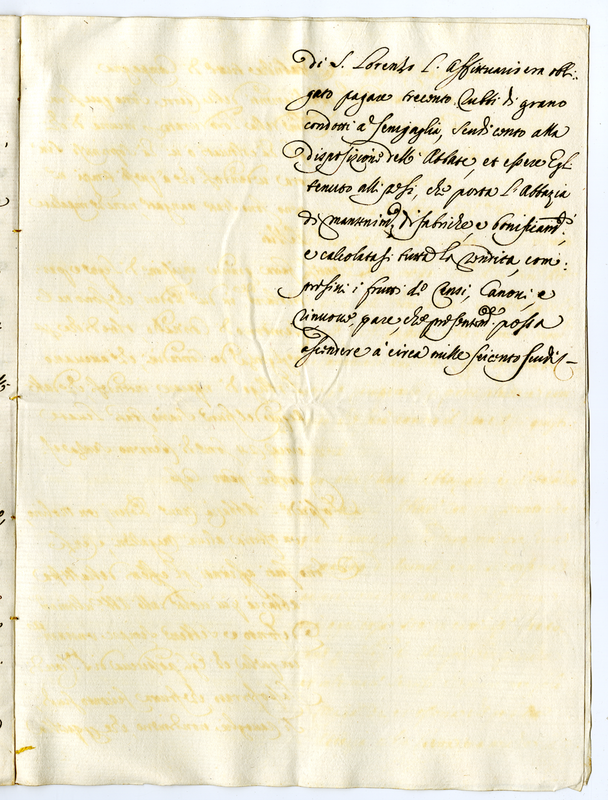 di S. Lorenzo l'Affittuario era obli:
gato pagare trecento Rubbi di grano
condotti a Senigaglia, scudi cento alla
disposizione dell' Abbate, et essere Egl.
tenuto alli pesi, che porta l'Abbazia
di mantenim.to di fabriche, e bonificam.ti
e calcolatasi tutta la rendita, com:
presivi i frutti de Censi, Canoni, e
pare, che presentem.te possa
ascendere a' circa mille seicento scudi